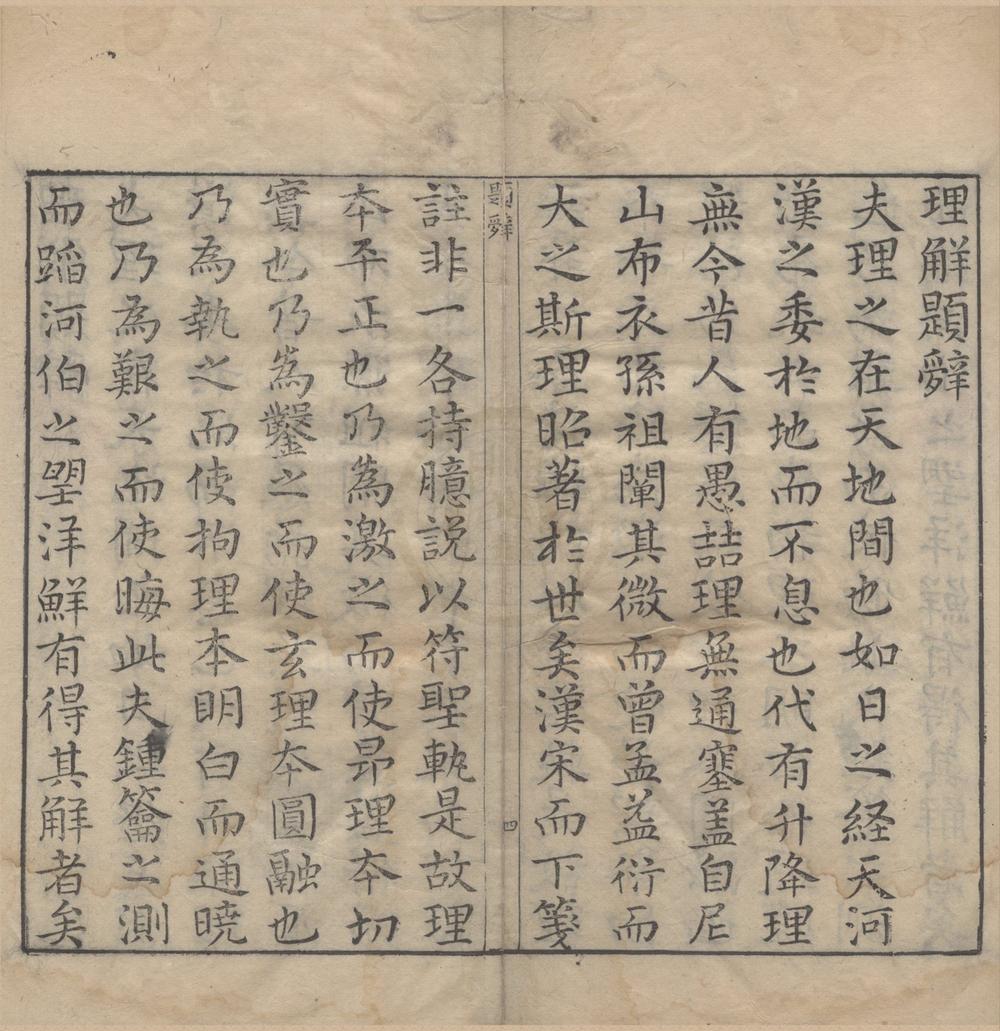 理解題辭
夫理之在天地間也如日之経天河
漢之委於地而不息也代有升降理
無今昔人有愚喆理無通塞盖自尼
山布衣孫祖闡其微而曾孟益衍而
大之斯理昭著於世矣漢宋而下箋
題辭
四
註非一各持臆説以符聖軌是故理
本平正也乃為激之而使昂理本切
實也乃為鑿之而使玄理本圓融也
乃為執之而使拘理本明白而通曉
也乃為艱之而使晦此夫鍾籥之測
而蹈河伯之朢洋鮮有得其解者矣